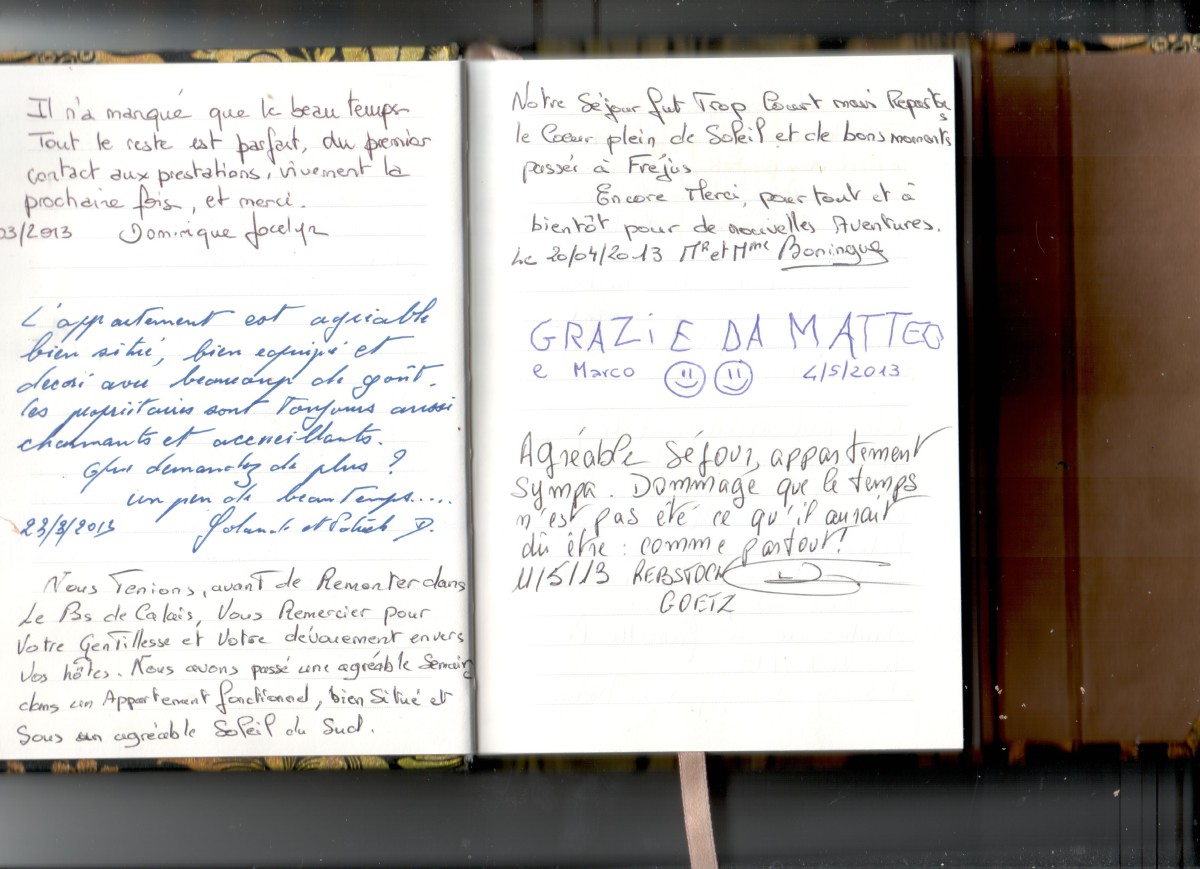 Il n'a manqué que le beau temps
Tout le reste est parfait, du premier
contact aux prestations, vivement la
prochaine fois, et merci.
03/2013 Dominique Jocelyn
L'appartement est agréable
bien situé, bien equipé et
décoré avec beaucoup de goût.
les propriétaires sont toujours aussi
charmants et acceuillants.
Que demandez de plus ?
un peu de beau temps....
23/3/2013 Yolande et Patrick D.
Nous Tenions, avant de Remonter dans
Le Pas de Calais, Vous Remercier pour
Votre Gentillesse et Votre dévouement envers
Vos hôtes. Nous avons passé une agréable Semaine
dans un Appartement fonctionnel, bien Situé et
Sous un agréable Soleil du Sud.
Notre Séjour fut Trop Court mais Reparts
le Coeur plein de Soleil et de bons moments
passés à Fréjus
Encore Merci, pour tout et à
bientôt pour de nouvelles Aventures.
Le 20/04/2013 Mr et Mme Boningue
GRAZIE DA MATTEO
e Marco 4/5/2013
Agréable séjour, appartement
sympa. Dommage que le temps
n'est pas été ce qu'il aurait
dû être : comme partout!
11/5/13 REBSTOCK
GOETZ